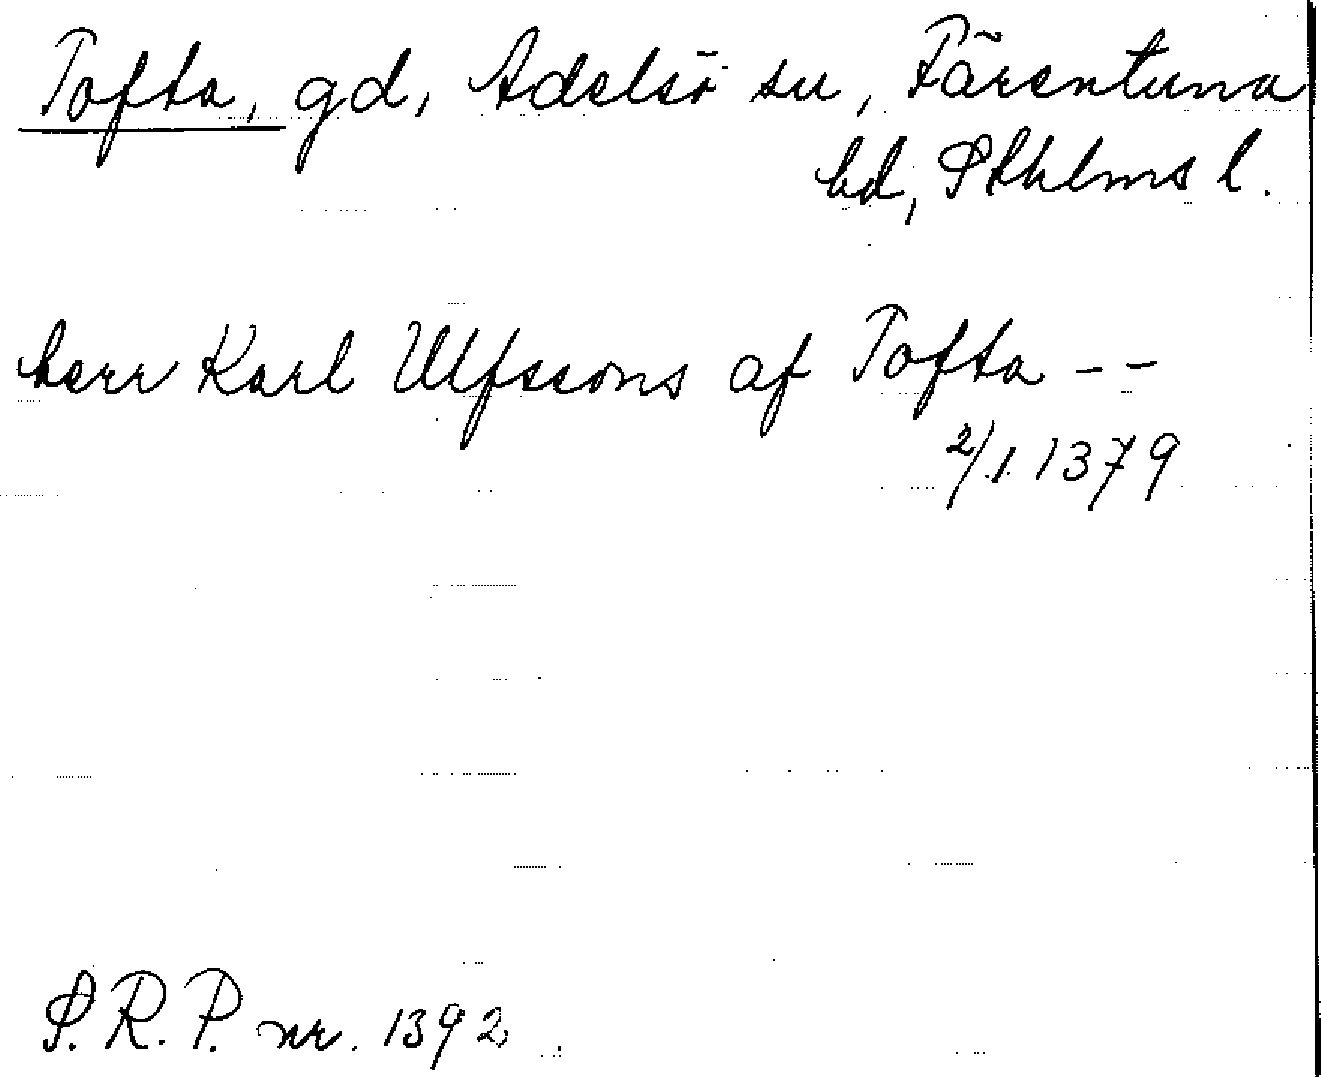 Tofta, gd, Adelsö sn, Färentuna
hd, Sthlms l.
herr Karl Ulfssons af Tofta --
2/1 1379
S.R.P. nr. 1392